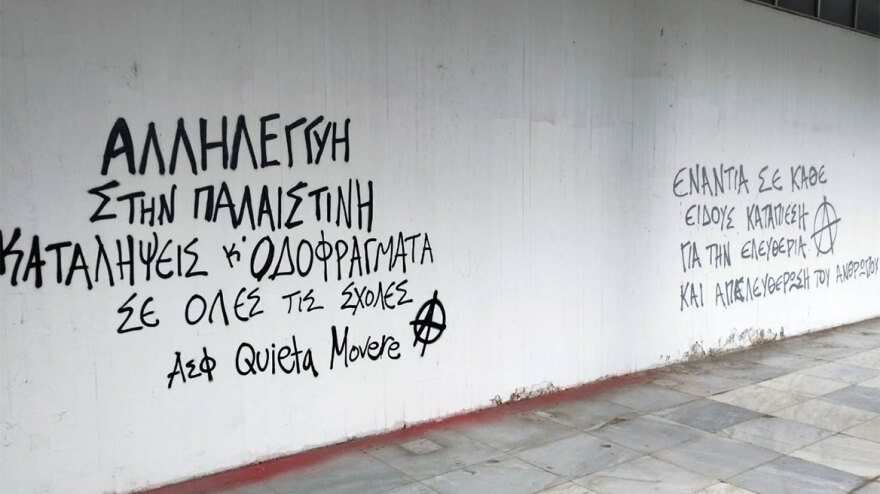 ΑΛΛΗΛΕΓΓΥΗ
ΣΤΗΝ ΠΑΛΑΙΣΤΙΝΗ
ΚΑΤΑΛΗΨΕΙΣ Κ' ΟΔΟΦΡΑΓΜΑΤΑ
ΣΕ ΟΛΕΣ ΤΙΣ ΣΧΟΛΕΣ
ΑΣΦ Quieta Movere Ⓐ
ΕΝΑΝΤΙΑ ΣΕ ΚΑΘΕ
ΕΙΔΟΥΣ ΚΑΤΑΠΙΕΣΗ
ΓΙΑ ΤΗΝ ΕΛΕΥΘΕΡΙΑ Ⓐ
ΚΑΙ ΑΠΕΛΕΥΘΕΡΩΣΗ ΤΟΥ ΑΝΘΡΩΠΟΥ